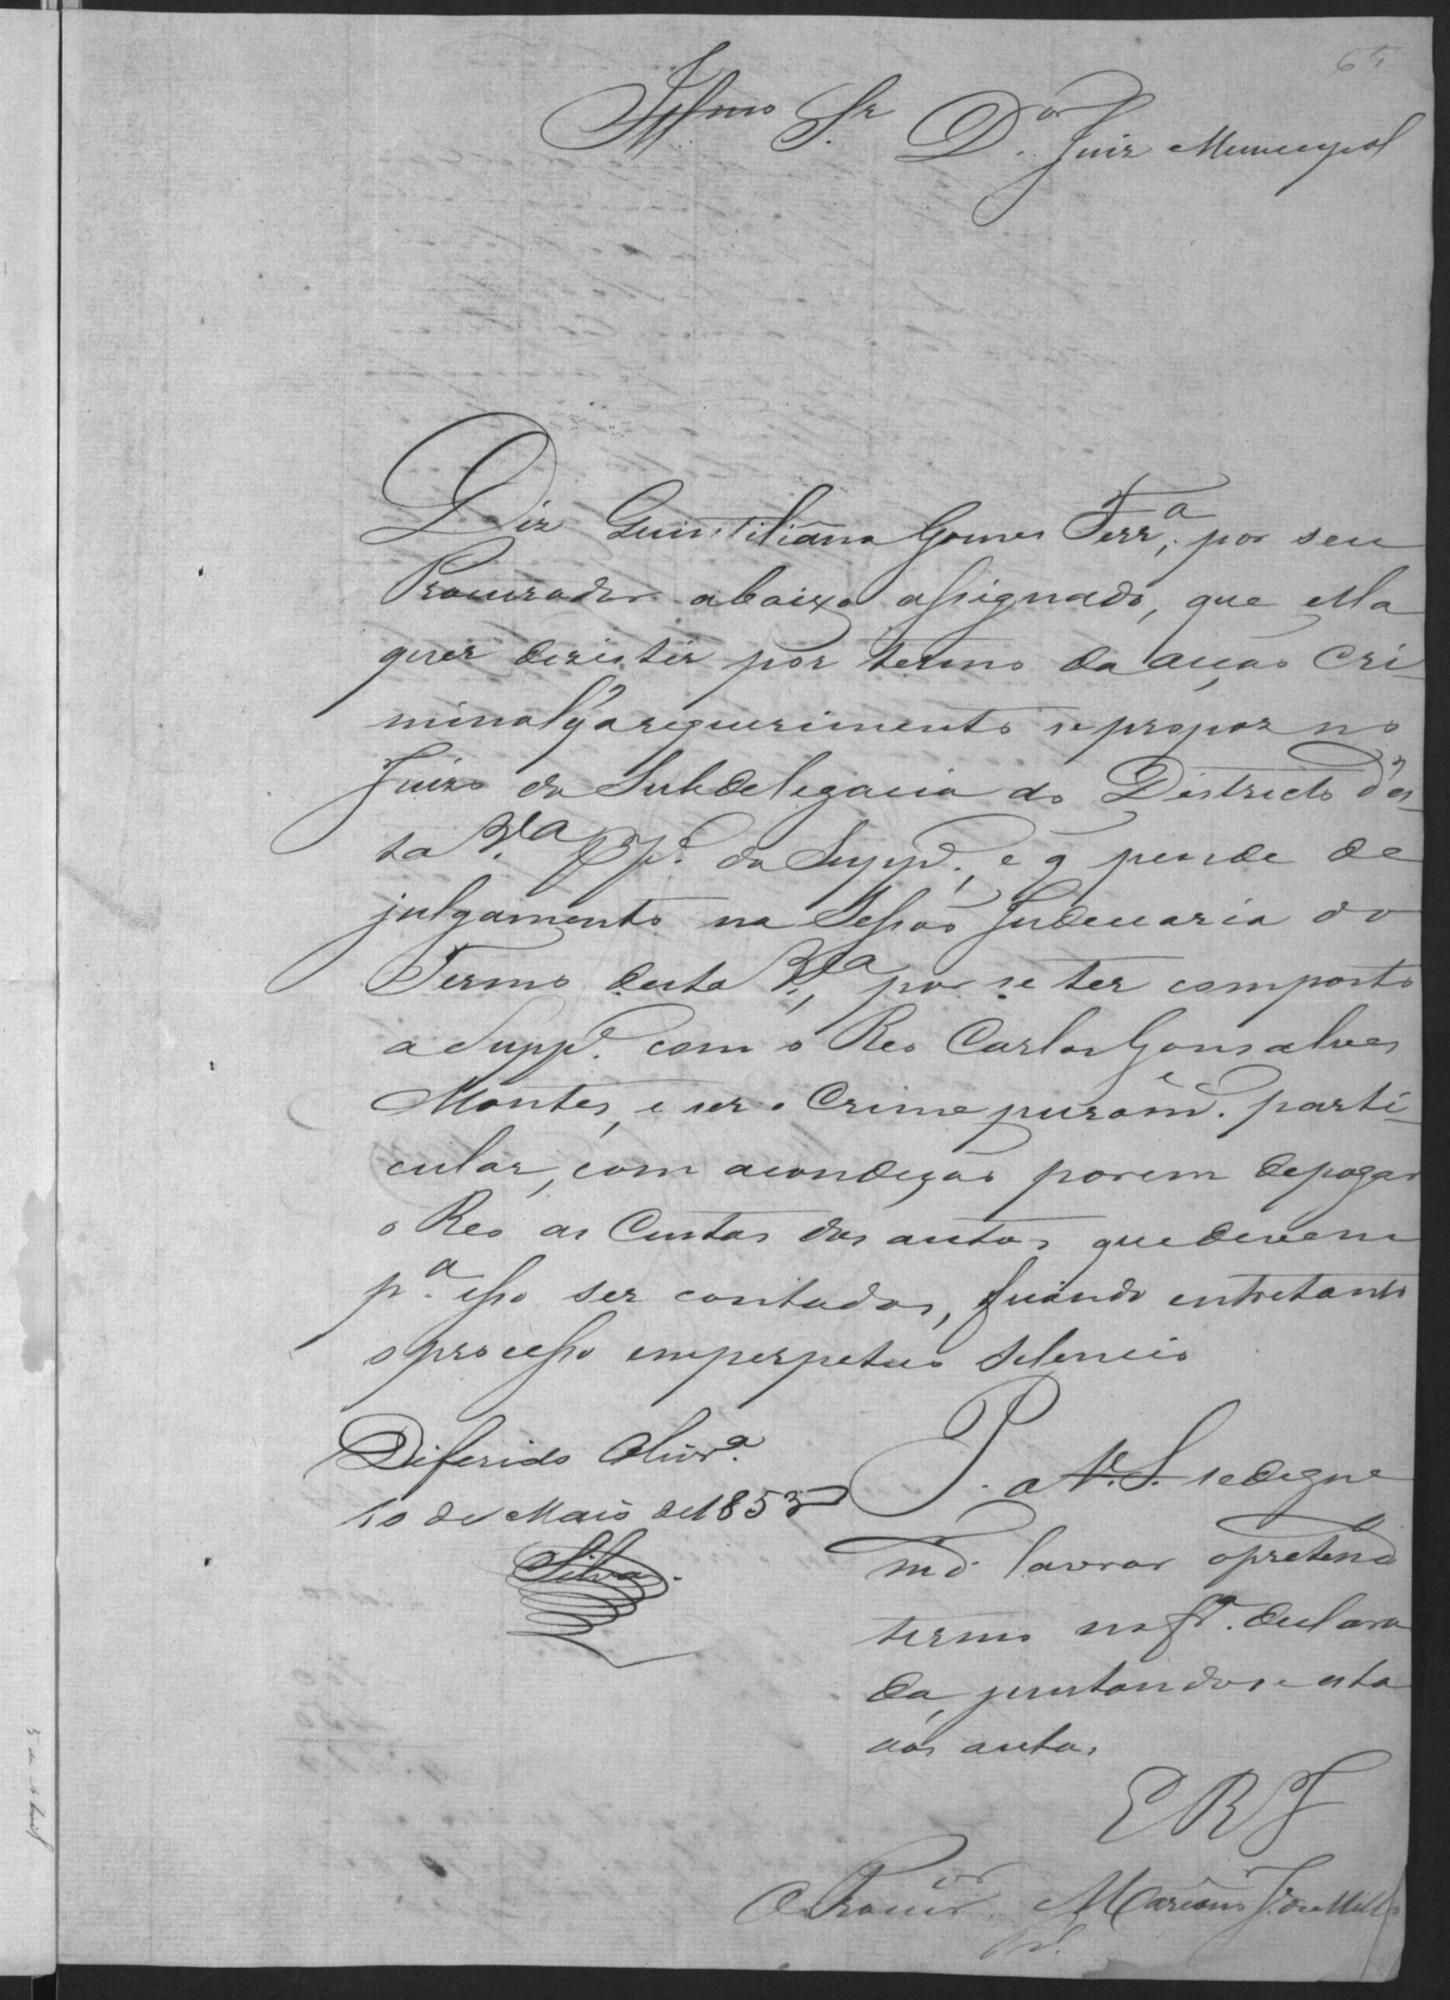 Illmo Sr. Dor. Juiz Municipal
Diz Quintiliana Gomes Ferra, por seu
Procurador abaixo assignado, que ella
quer dezistir por termo da acção Cri-
minal q a requerimento se propoz no
Juizo da Subdelegacia do Districto d'es-
ta Va da Suppe, e q pende de
julgamento na Sessão Judeciaria do
Termo desta Va, por se ter composto
a Suppe. com o Reo Carlos Gonsalves
Montes, e ser o Crime puramte. parti-
cular, com acondição porem depagar
o Reo as Custas dos autos que devem
pa. isso ser contados, ficando entretanto
o processo emperpetuo Silencio
P. a V. S. sedigne
mdr lavrar opretendo
termo na fra. declara
da, juntandose esta
aos autos
E R J
Diferido Olivra.
10 de Maio de 1853
Silva
O Procuror. Mariano